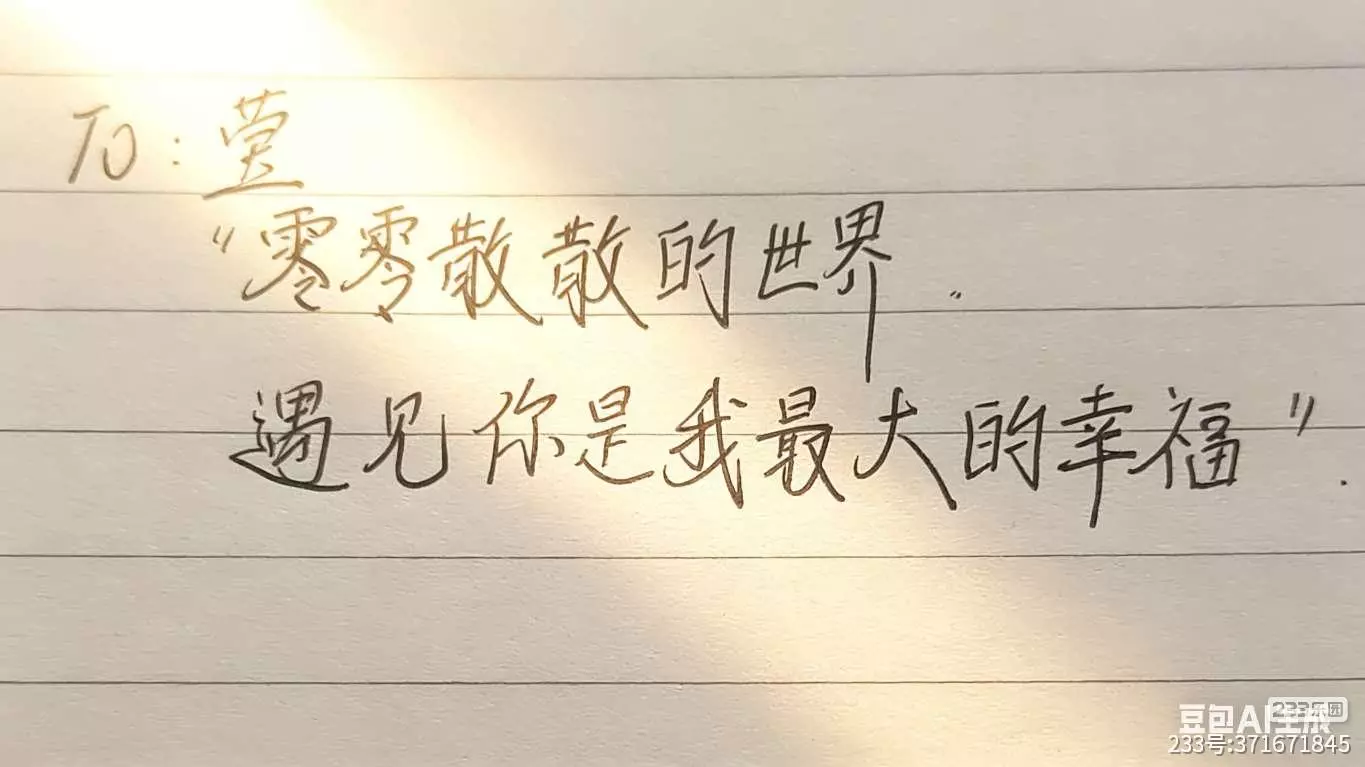 To:萱
“零零散散的世界..
遇见你是我最大的幸福”.
233乐园
豆包AI生成
233号:371671845